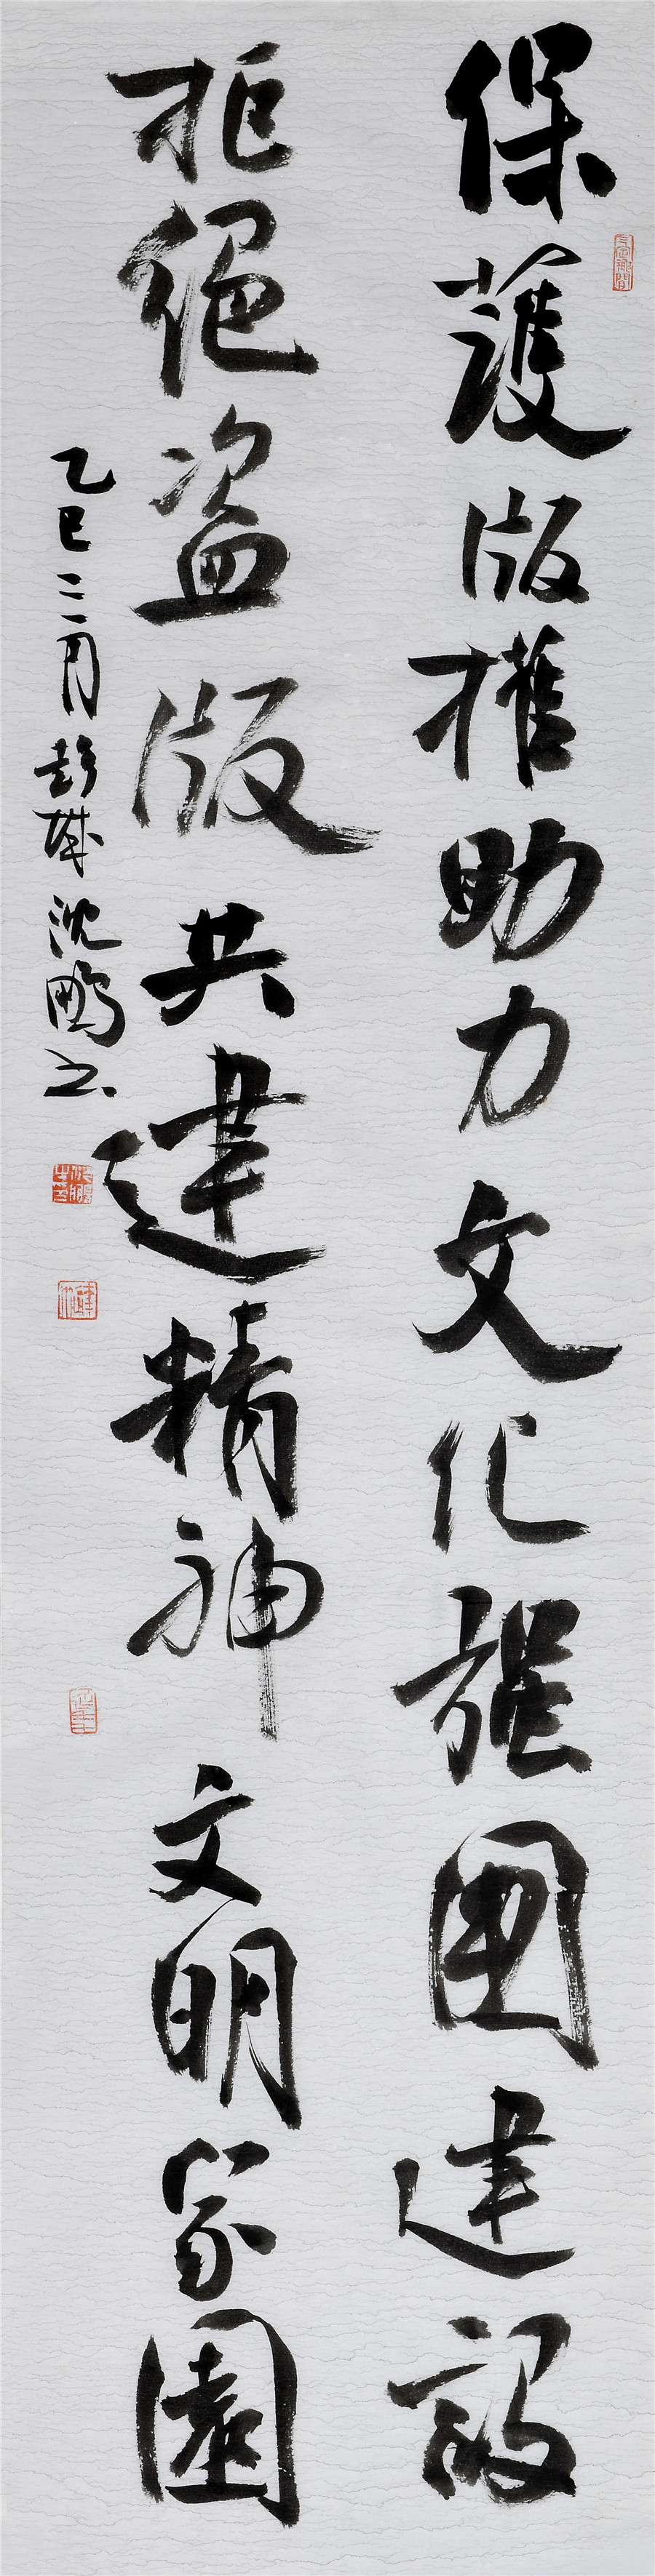 保護版權助力文化強國建設
拒絕盜版共建精神文明家園
乙巳三月彭城沈鵬书